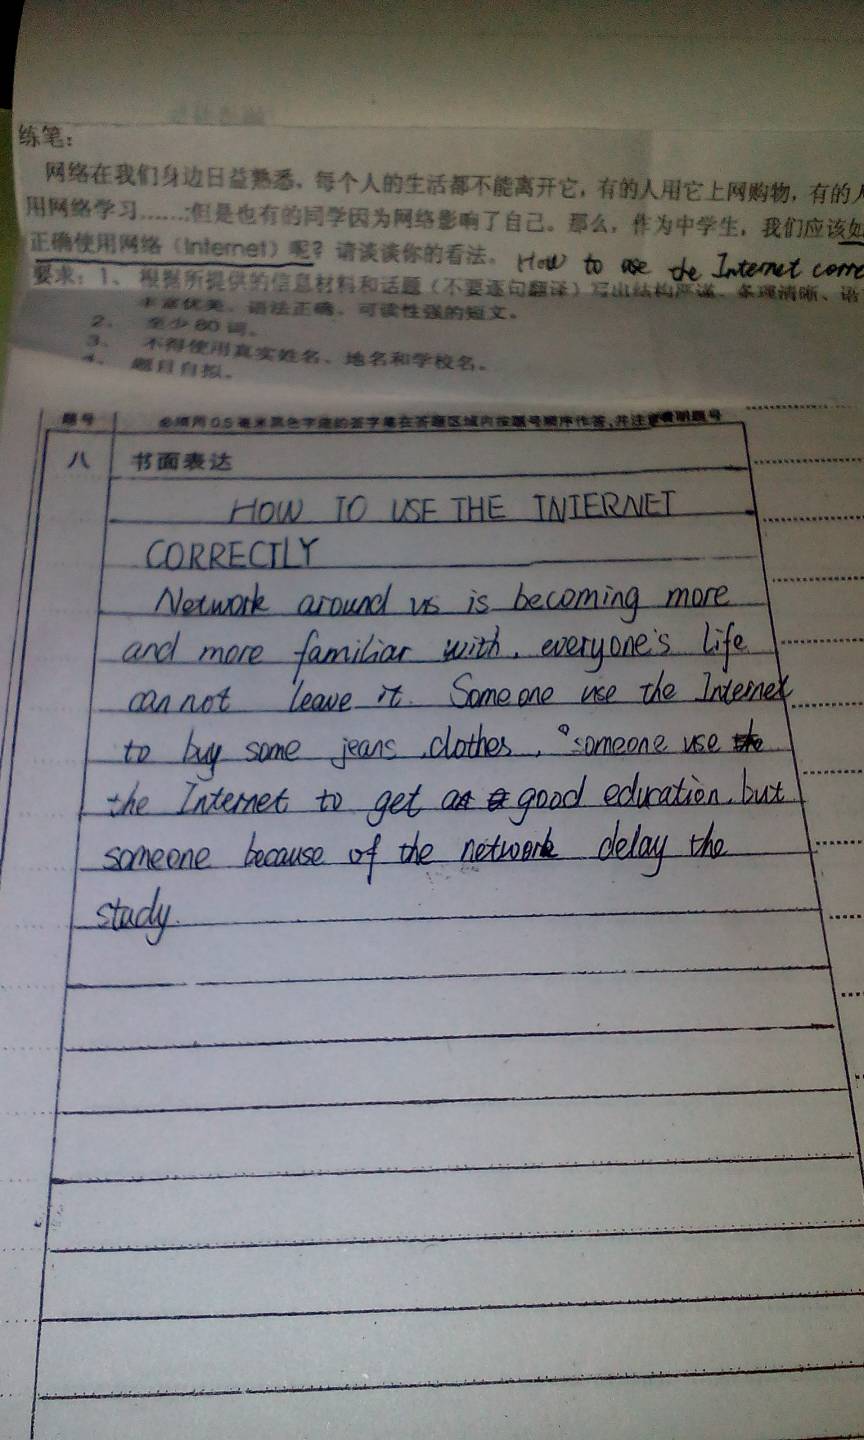 练笔：
网络在我们身边日益熟悉，每个人的生活都不能离开它，有的人用它上网购物，有的人
用网络学习......;但是也有的同学因为网络影响了自己。那么，作为中学生，我们应该如
正确使用网络（Internet）呢？请谈谈你的看法。 How to use the Internet corre
要求：1、根据所提供的信息材料和话题（不要逐句翻译）写出结构严谨、条理清晰、语
丰富优美、语法正确、可读性强的短文。
2、 至少 80 词。
3、 不得使用真实姓名、地名和学校名。
4、 题目自拟。
题号 必须用 0.5 毫米黑色字迹的签字笔在答题区域内按题号顺序作答,并注意看明题号
八 书面表达
HOW TO USE THE INTERNET
CORRECTLY
Network around us is becoming more
and more familiar with, everyone's life
can not leave it. Someone use the Internet
to buy some jeans, clothes, someone use
the Internet to get good education, but
someone because of the network delay the
study.